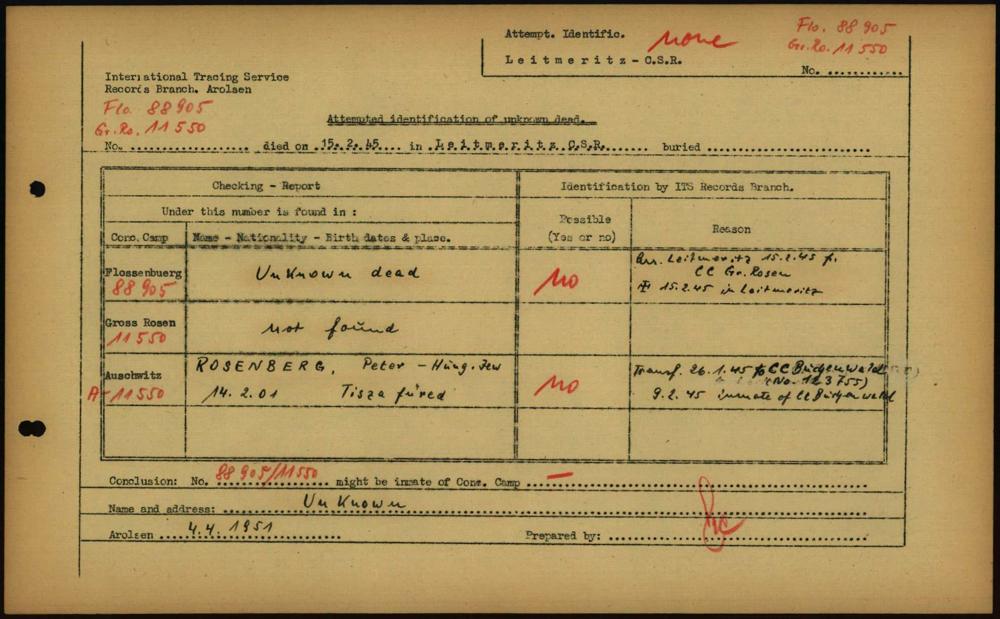 Attempt. Identific. none
Leitmeritz - C.S.R.
Flo. 88 905
Gr.Ro. 11 550
No. ............
International Tracing Service
Records Branch. Arolsen
Flo. 88905
Gr.Ro. 11 550
Attempted identification of unknown dead.
No. .................... died on .15.2.45.... in .Leitmeritz C.S.R....... buried ............................
Checking - Report
Identification by ITS Records Branch.
Under this number is found in :
Possible
(Yes or no)
Reason
Conc. Camp
Name - Nationality - Birth dates & place.
Flossenbuerg
88 905
Unknown dead
no
Arr. Leitmeritz 15.2.45 fr.
CC Gr. Rosen
15.2.45 in Leitmeritz
Gross Rosen
11 550
not found
Auschwitz
A-11550
ROSENBERG, Peter - Hung. Jew
14.2.01 Tisza füred
no
Transf. 26.1.45 to CC Buchenwald
(No. 123755)
9.2.45 inmate of CC Buchenwald
Conclusion: No. 88 905/11550 might be inmate of Conc. Camp ... – ...
Name and address: ........ Unknown ........
Arolsen .... 4.4.1951 ....
Prepared by: ........